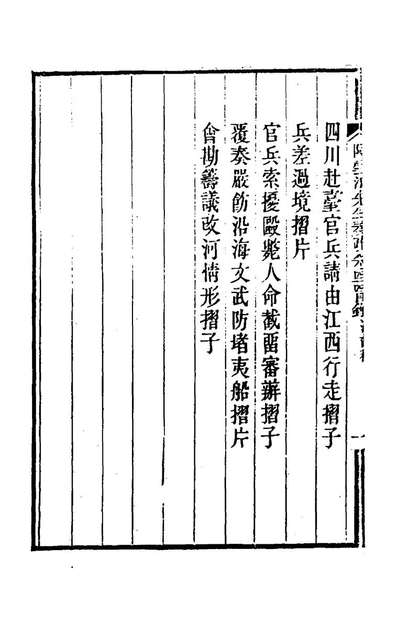 四川赴臺官兵請由江西行走摺子
兵差過境摺片
官兵索擾毆斃人命截留審辦摺子
覆奏嚴飭沿海文武防堵夷船摺片
會勘籌議改河情形摺子